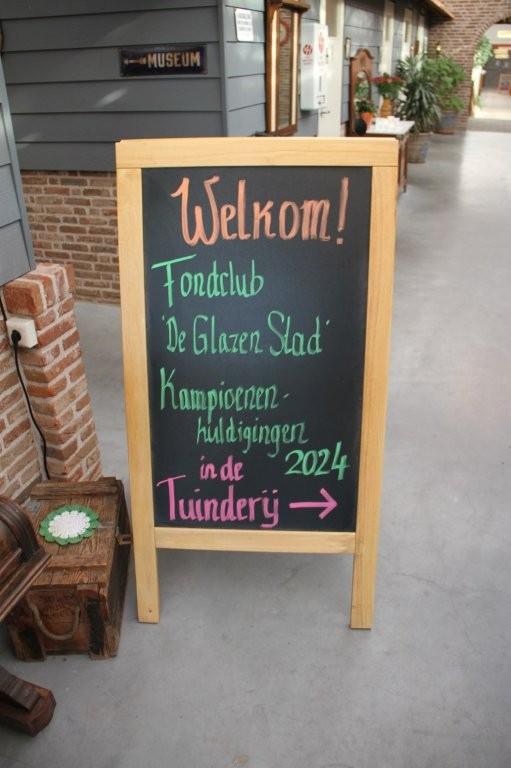 MUSEUM
Welkom!
Fondclub
'De Glazen Stad'
Kampioenen-
huldigingen
2024
in de
Tuinderij →